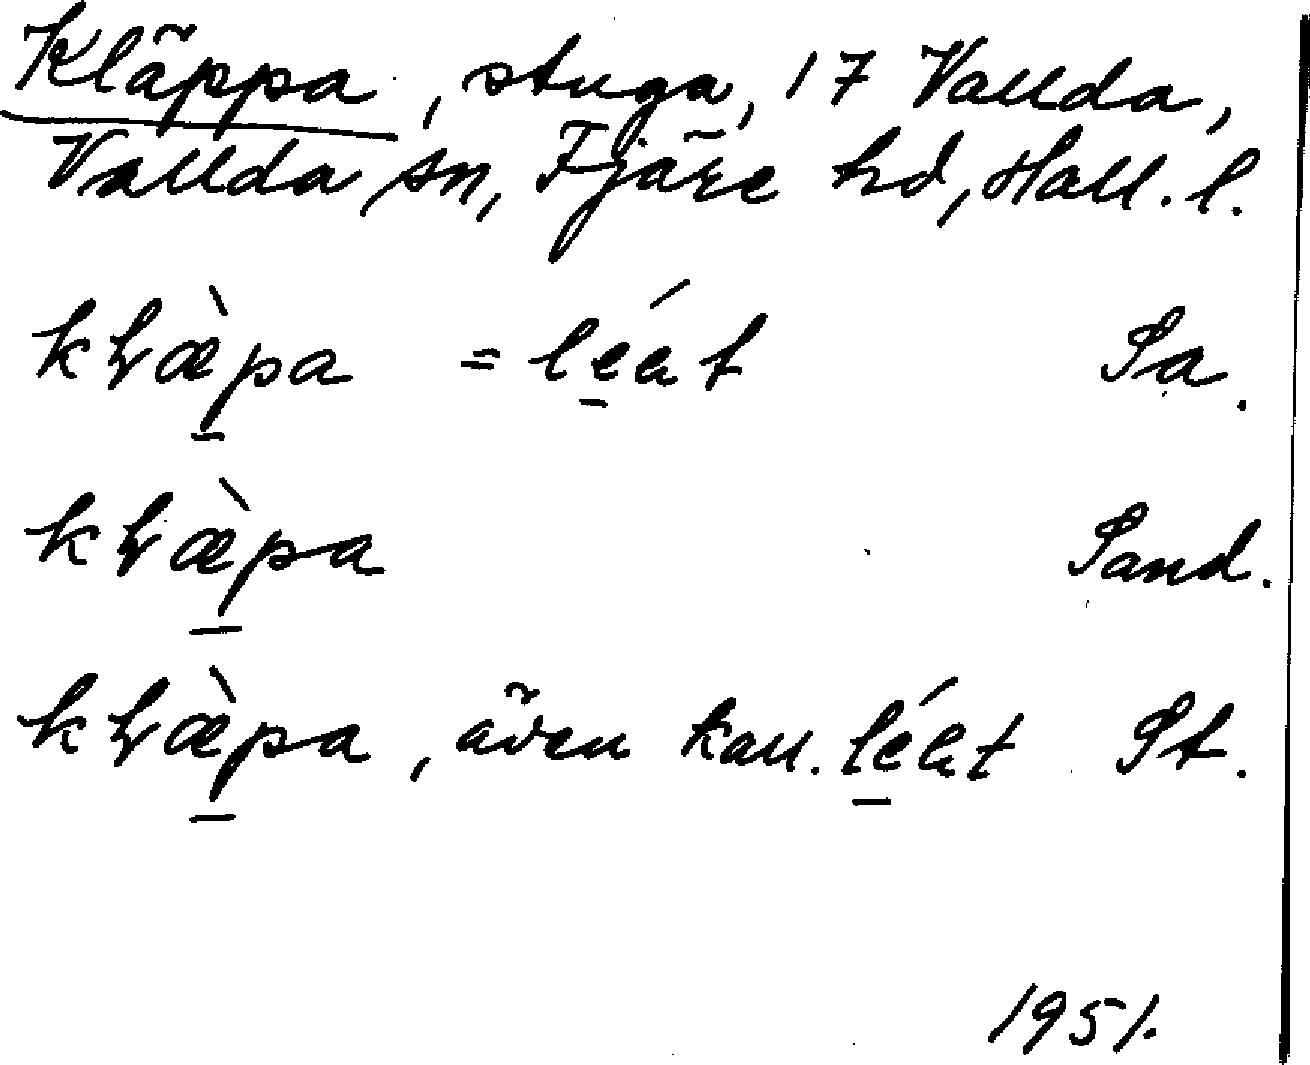 Kläppa, stuga, 17 Vallda,
Vallda sn, Fjäre hd, Hall. l.
kɫæ̀p̱a = ḻéat Sa.
kɫæ̀p̱a Sand.
kɫæ̀p̱a, även kall. léat St.
1951.